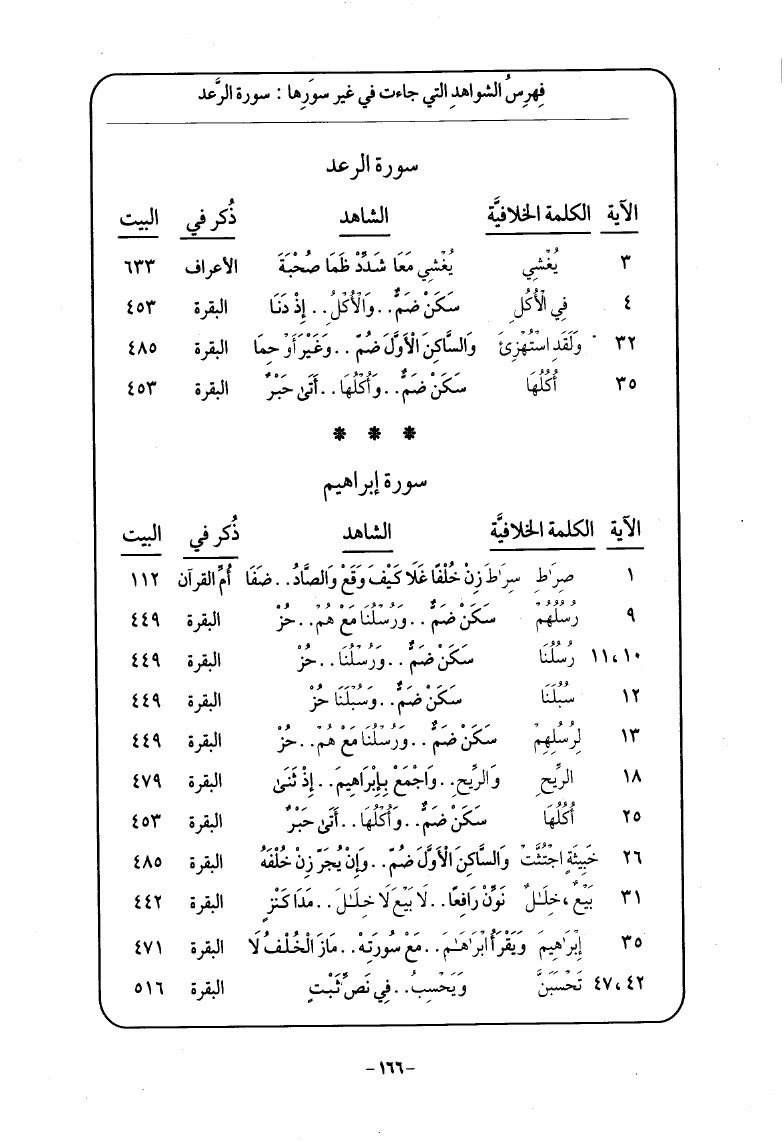 فهرسُ الشواهدِ التي جاءت في غير سوَرِها : سورة الرَّعد
سورة الرعد
الآية الكلمة الخلافيَّة الشاهد ذُكر في البيت
٣ يُغْشِي يُغْشِي مَعَا شَدِّدْ ظَمَا صُحْبَة الأعراف ٦٣٣
٤ فِي الْأُكُلِ سَكِّنْ ضَمٌّ..وَالْأُكُلُ..إِذْ دَنَا البقرة ٤٥٣
٣٢ وَلَقَدِ اسْتُهْزِئَ وَالسَّاكِنَ الْأَوَّلَ ضُمّ..وَغَيْرَ أَوْ حِمَا البقرة ٤٨٥
٣٥ أُكُلُهَا سَكِّنْ ضَمٌّ..وَأُكْلُهَا..أَتَىٰ حَبْرٌ البقرة ٤٥٣
* * *
سورة إبراهيم
الآية الكلمة الخلافيَّة الشاهد ذُكر في البيت
١ صِرَٰطِ سِرَٰطَ زِنْ خُلْفًا غَلَا كَيْفَ وَقَعْ وَالصَّادُ..ضَفَا أُمِّ القرآن ١١٢
٩ رُسُلُهُم سَكِّنْ ضَمٌّ..وَرُسْلُنَا مَعْ هُمْ..حُزْ البقرة ٤٤٩
١٠،١١ رُسُلُنَا سَكِّنْ ضَمٌّ..وَرُسْلُنَا..حُزْ البقرة ٤٤٩
١٢ سُبُلَنَا سَكِّنْ ضَمٌّ..وَسُبْلَنَا حُزْ البقرة ٤٤٩
١٣ لِرُسُلِهِمْ سَكِّنْ ضَمٌّ..وَرُسْلُنَا مَعْ هُمْ..حُزْ البقرة ٤٤٩
١٨ الرِّيحُ وَالرِّيح..وَاجْمَعْ بِإِبْرَاهِيمَ..إِذْ ثَنَىٰ البقرة ٤٧٩
٢٥ أُكُلُهَا سَكِّنْ ضَمٌّ..وَأُكْلُهَا..أَتَىٰ حَبْرٌ البقرة ٤٥٣
٢٦ خَبِيثَةٍ اجْتُثَّتْ وَالسَّاكِنَ الْأَوَّلَ ضُمّ..وَإِنْ يُجَرّ زِنْ خُلْفَهُ البقرة ٤٨٥
٣١ بَيْعٌ، خِلَٰلٌ نَوِّنْ رَافِعًا..لَا بَيْعَ لَا خِلَٰلَ..مَدَا كَنْزٍ البقرة ٤٤٢
٣٥ إِبْرَٰهِيمَ وَيَقْرَأُ ابْرَاهَٰمَ..مَعْ سُورَتِهِ..مَازَ الْخُلْفُ لَا البقرة ٤٧١
٤٢،٤٧ تَحْسَبَنَّ وَيَحْسِبُ..فِي نَصٍّ ثَبْتٍ البقرة ٥١٦
-١٦٦-